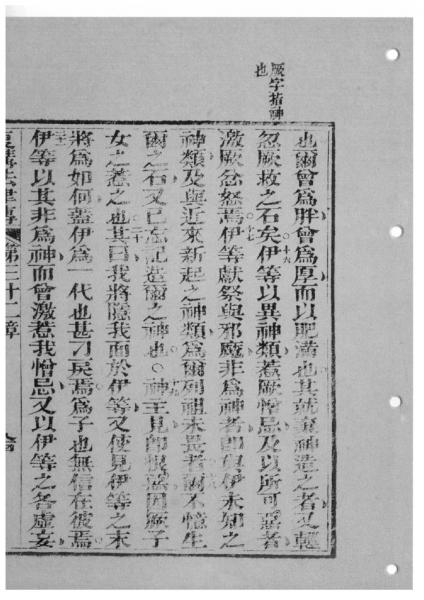 厥字指神
也
也爾曾為胖曾為厚而以肥滿也其就棄神造之者又輕
忽厥救之石矣○十六伊等以異神類惹厥憎忌及以所可惡者
激厥忿怒焉○十七伊等獻祭與邪魔非為神者即與伊未知之
神類及與近來新起之神類為爾列祖未畏者爾不憶生
爾之石又已忘記造爾之神也○十九神主見即恨惡因厥子
女之惹之也二十其曰我將隱我面於伊等又使見伊等之末
將為如何蓋伊為一代也甚刁戾焉為子也無信在彼焉
伊等以其非為神而曾激惹我憎忌又以伊等之各虛妄
講法律傳 第三十二章